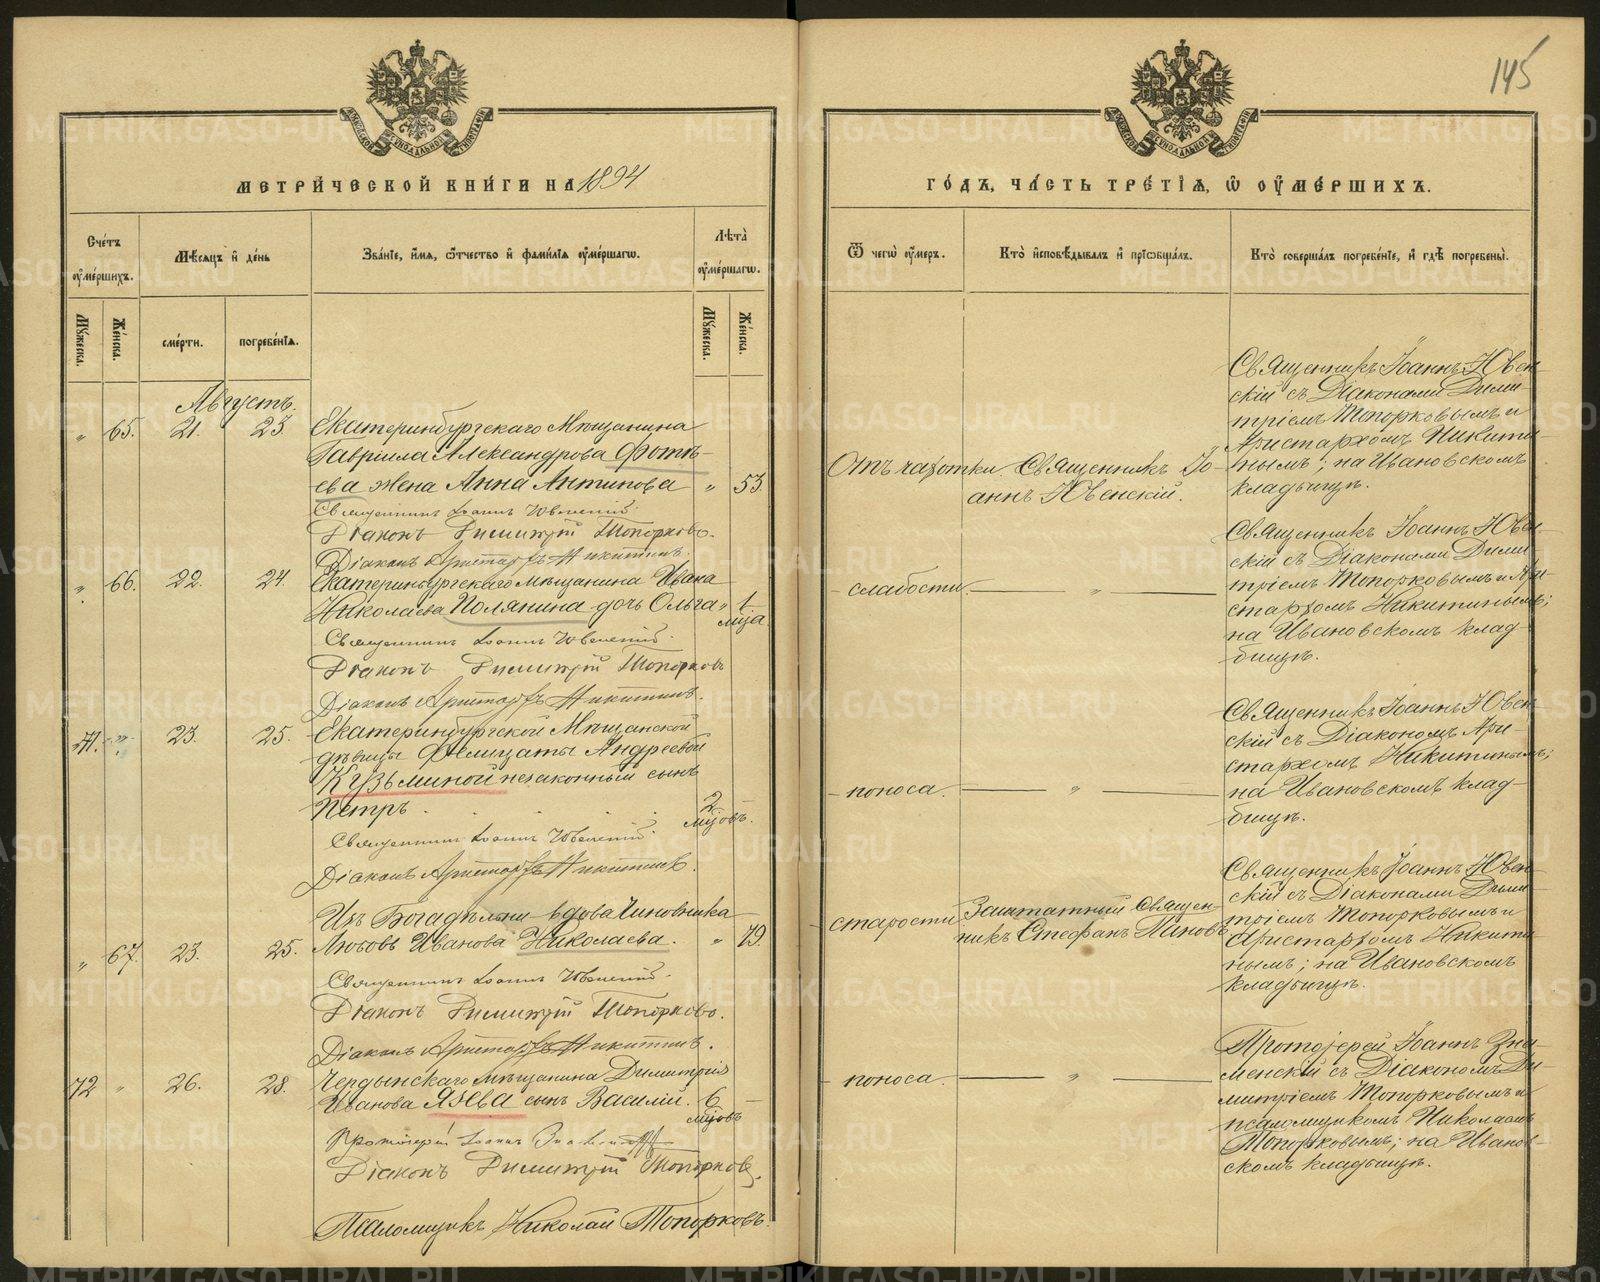 145
МЕТРИ́ЧЕСКОЙ КНИ́ГИ НА 1894
ГО́ДЪ, ЧА́СТЬ ТРЕ́ТІЯ, Ѿ ОУ҆МЕ́РШИХЪ.
Сче́тъ оу҆ме́ршихъ.
Мѣ́сяцъ и҆ де́нь
Зва́ніе, и҆́мя, ѻ҆́тчество и҆ фами́лія оу҆ме́ршагѡ.
Лѣ́та̀ оу҆ме́ршагѡ.
Му́жеска.
Же́нска.
сме́рти.
погребе́нія.
Му́жеска.
Же́нска.
Ѿ чегѡ̀ оу҆́меръ.
Кто̀ и҆сповѣ́дывалъ и҆ прїѡбща́лъ.
Кто̀ соверша́лъ погребе́ніе, и҆ гдѣ̀ погребены̀.
Августъ.
" 65. 21. 23
Екатеринбургскаго Мѣщанина
Гавріила Александрова Фотѣ-
ева жена Анна Антипова " 53.
Священникъ Іоаннъ Ювенскій.
Діаконъ Димитрій Топорковъ.
Діаконъ Аристархъ Никитинъ.
Отъ чахотки
Священникъ Іо-
аннъ Ювенскій.
Священникъ Іоаннъ Ювен-
скій съ Діаконами Дими-
тріемъ Топорковымъ и
Аристархомъ Никити-
нымъ; на Ивановскомъ
кладбищѣ.
" 66. 22. 24.
Екатеринбургскаго мѣщанина Ивана
Николаева Полянина дочь Ольга " 1
мца.
Священникъ Іоаннъ Ювенскій.
Діаконъ Димитрій Топорковъ
Діаконъ Аристархъ Никитинъ.
- слабости. "
Священникъ Іоаннъ Ювен-
скій съ Діаконами Дими-
тріемъ Топорковымъ и Ари-
стархомъ Никитинымъ;
на Ивановскомъ клад-
бищѣ.
71. " 23. 25.
Екатеринбургской Мѣщанской
дѣвицы Фелицаты Андреевой
Кузьминой незаконный сынъ
Петръ. 2
мцовъ.
Священникъ Іоаннъ Ювенскій.
Діаконъ Аристархъ Никитинъ.
- поноса. "
Священникъ Іоаннъ Ювен-
скій съ Діакономъ Ари-
стархомъ Никитинымъ;
на Ивановскомъ клад-
бищѣ.
" 67. 23. 25.
Изъ Богадѣльни вдова Чиновника
Любовь Иванова Николаева. " 79.
Священникъ Іоаннъ Ювенскій.
Діаконъ Димитрій Топорковъ.
Діаконъ Аристархъ Никитинъ.
- старости
Заштатный Священ-
никъ Стефанъ Пановъ
Священникъ Іоаннъ Ювен-
скій съ Діаконами Дими-
тріемъ Топорковымъ и
Аристархомъ Никити-
нымъ; на Ивановскомъ
кладбищѣ.
72 " 26. 28.
Чердынскаго мѣщанина Димитрія
Иванова Язева сынъ Василій. 6 -
мцовъ
Протоіерей Іоаннъ Знаменскій
Діаконъ Димитрій Топорковъ.
Псаломщикъ Николай Топорковъ.
- поноса. "
Протоіерей Іоаннъ Зна-
менскій съ Діакономъ Ди-
митріемъ Топорковымъ и
псаломщикомъ Николаемъ
Топорковымъ; на Иванов-
скомъ кладбищѣ.
METRIKI.GASO-URAL.RU